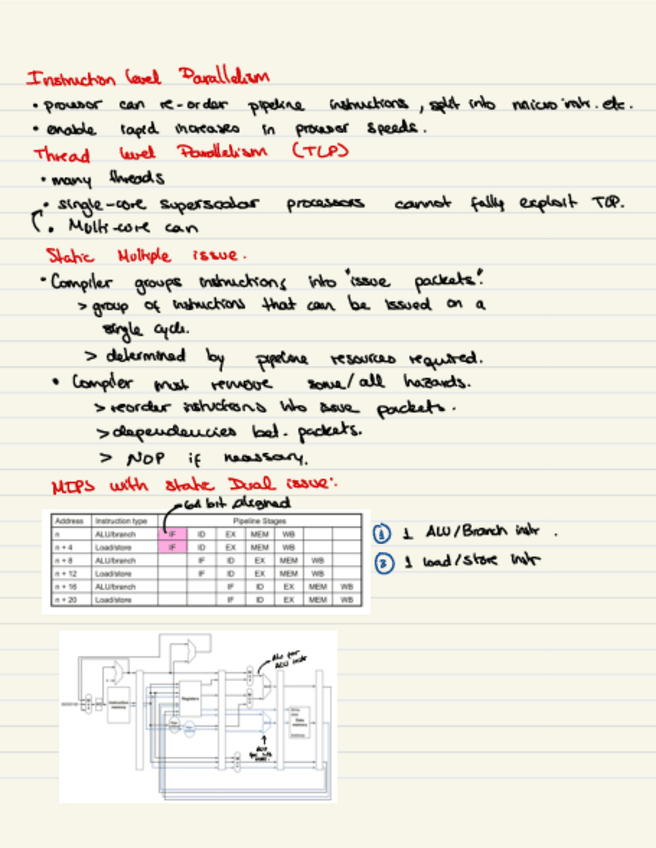 Instruction level Parallelism
• processor can re-order pipeline instructions, split into micro instr. etc.
• enable rapid increases in processor speeds.
Thread level Parallelism (TLP)
• many threads
• single-core superscalar processors cannot fully exploit TLP.
• Multi-core can
Static Multiple issue.
• Compiler groups instructions into "issue packets".
> group of instructions that can be issued on a
single cycle.
> determined by pipeline resources required.
• Compiler must remove some/all hazards.
> reorder instructions into issue packets.
> dependencies bet. packets.
> NOP if necessary.
MIPS with static Dual issue:
64 bit aligned
Address Instruction type Pipeline Stages
n ALU/branch IF ID EX MEM WB
n + 4 Load/store IF ID EX MEM WB
n + 8 ALU/branch IF ID EX MEM WB
n + 12 Load/store IF ID EX MEM WB
n + 16 ALU/branch IF ID EX MEM WB
n + 20 Load/store IF ID EX MEM WB
① 1 ALU/Branch instr.
② 1 load/store instr
ALU for
ALU instr
Instruction
memory
Registers
Data
memory
Address